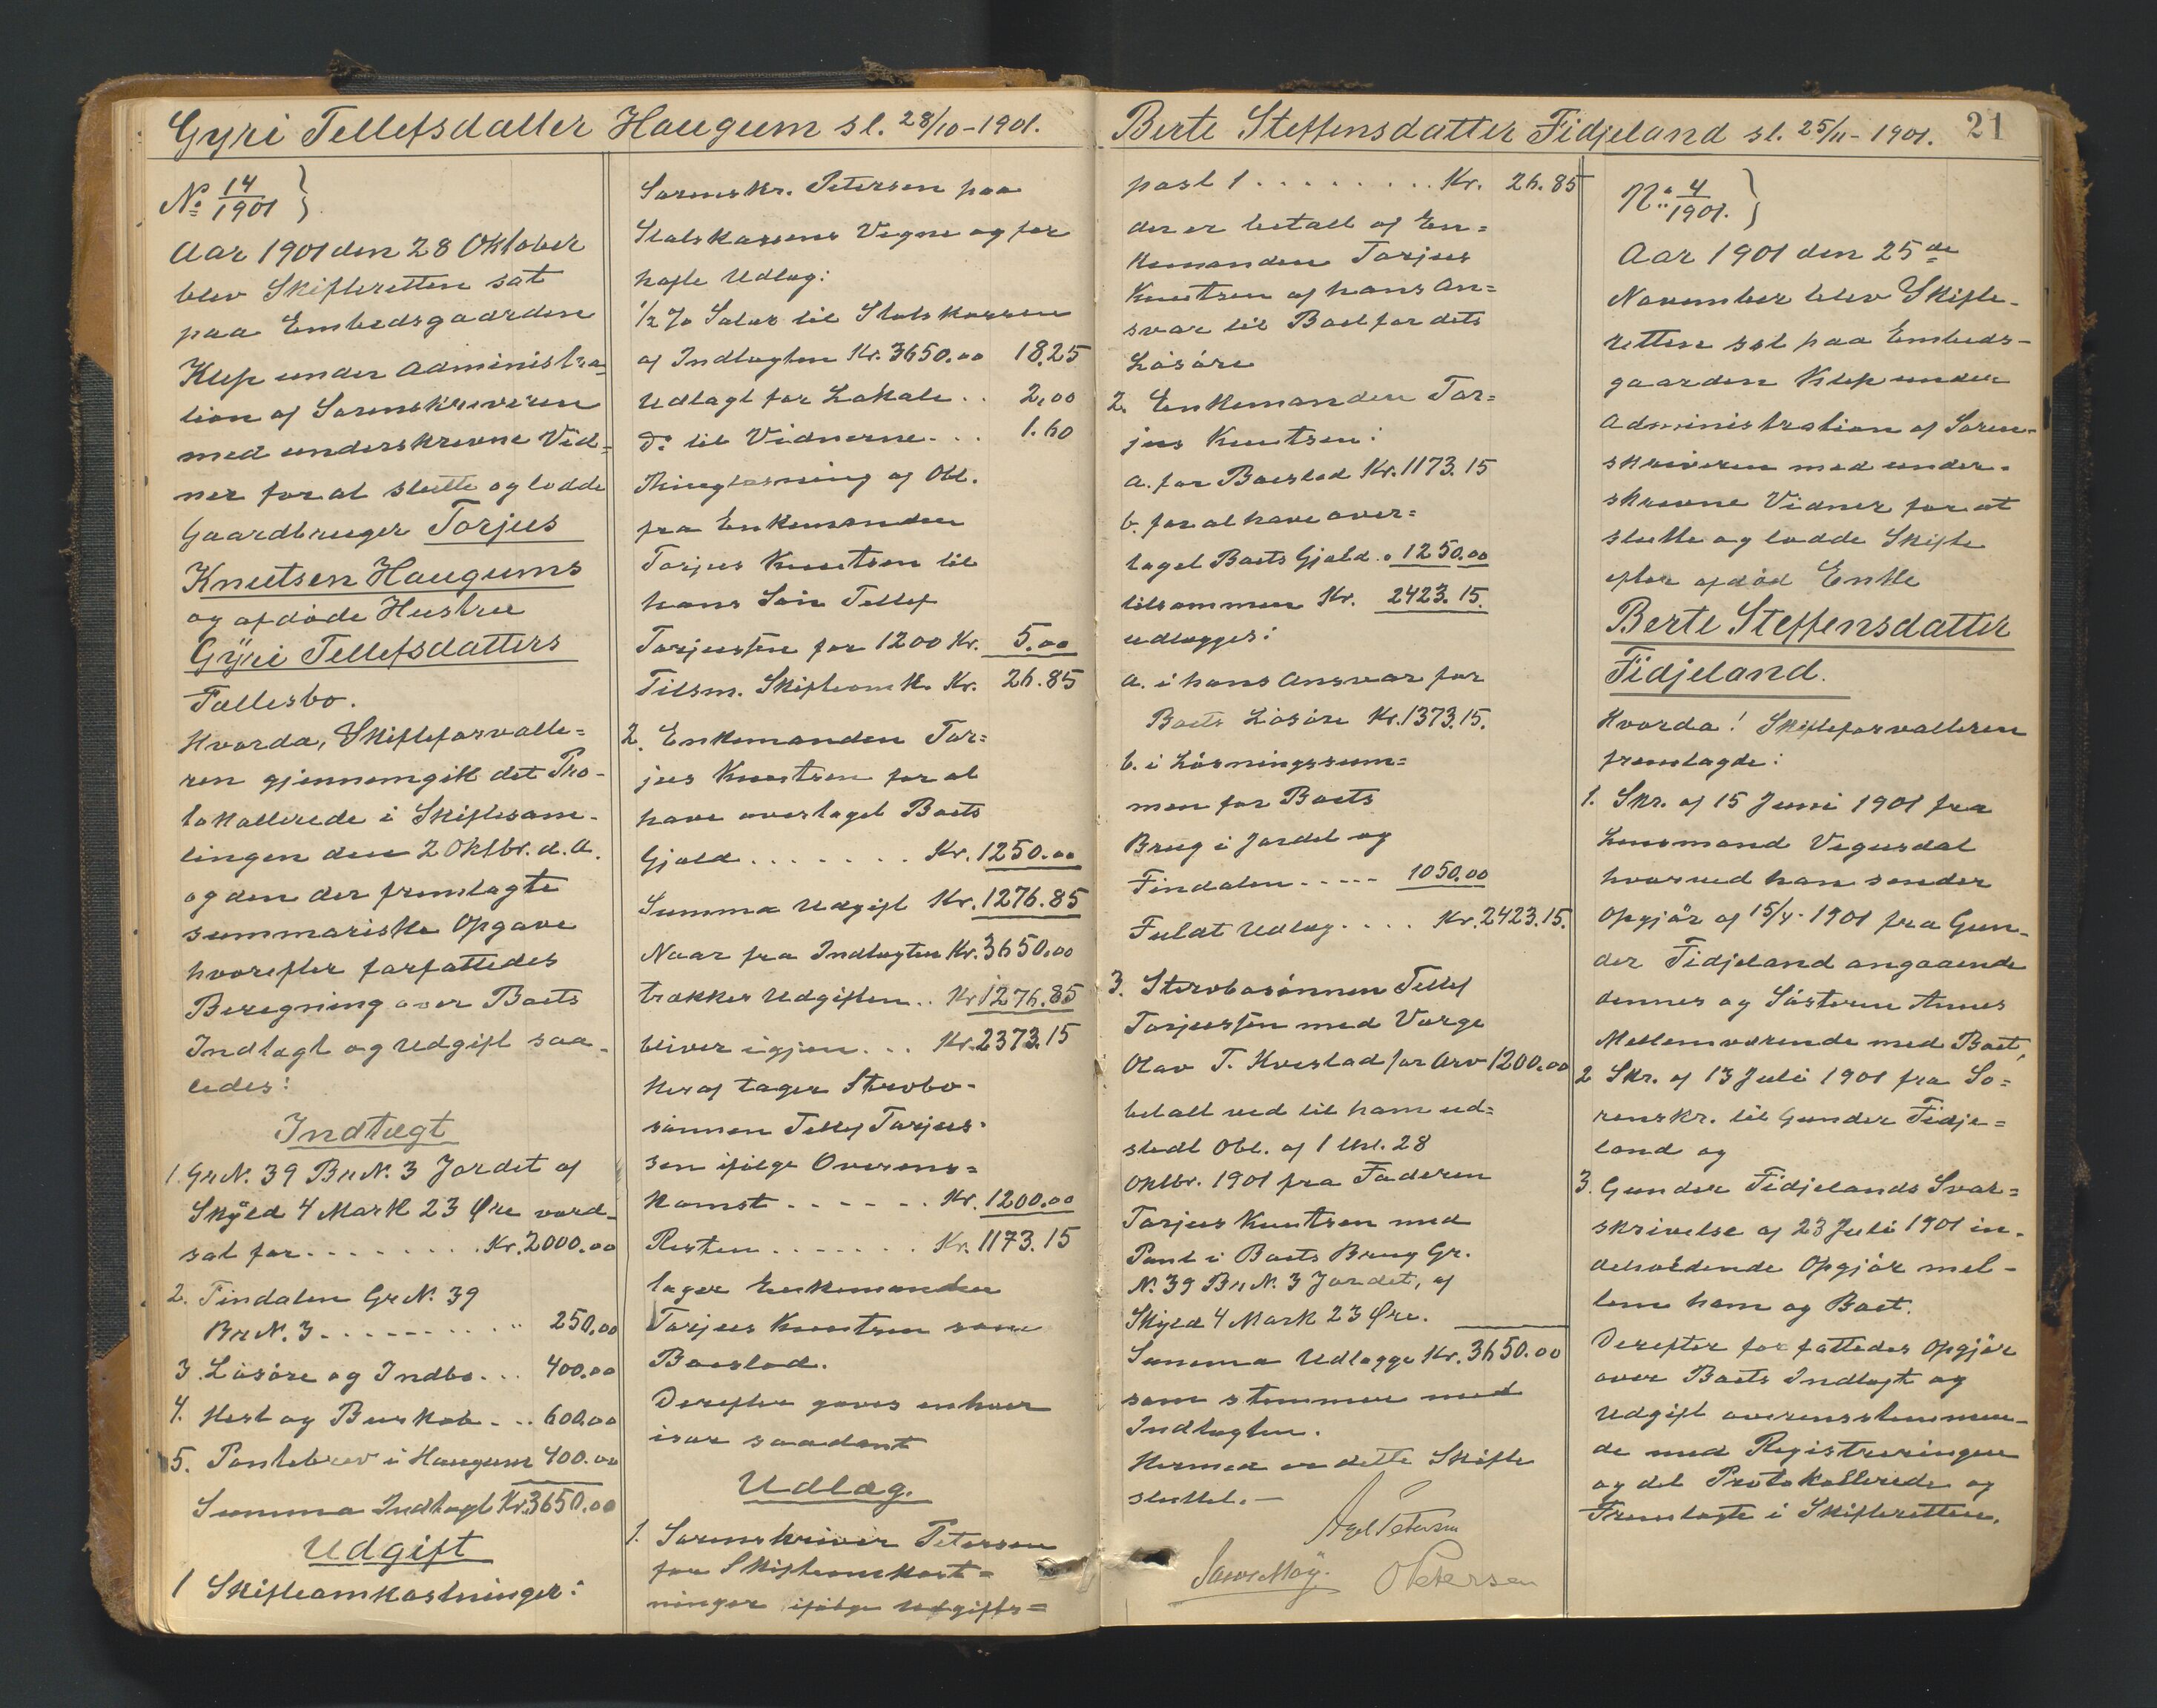 Gyri Tellefsdatter Haugum sl. 28/10-1901.
No 14/1901 }
Aar 1901 den 28 Oktober
blev Skifteretten sat
paa Embedsgaarden
Klep under Administra-
tion af Sorenskriveren
med underskrevne Vid=
ner for at slutte og lodde
Gaardbruger Torjus
Knutsen Haugums
og afdøde Hustru
Gÿri Tellefsdatters
Fællesbo.
Hvorda, Skifteforvalte=
ren gjennemgik det Pro-
tokollerede i Skiftesam-
lingen den 2 Oktbr. d. A.
og den der fremlagte
summariske Opgave
hvorefter forfattedes
Beregning over Boets
Indtægt og Udgift saa-
ledes:
Indtægt
1. Gr. N. 39 Br. N. 3 Jordet af
Skÿld 4 Mark 23 Øre værd-
sat for . . . . . . . Kr. 2000.00
2. Findalen Gr. N. 39
Br. N. 3 . . . . . . . . . " 250.00
3. Løsøre og Indbo . . . 400.00
4. Hest og Buskab . . . 600.00
5. Pantebrev i Haugum 400.00
Summa Indtægt Kr. 3650.00
Udgift
1 Skifteomkostninger:
Sorenskr. Petersen paa
Statskassens Vegne og for
hafte Udlæg:
1/2 % Salær til Statskassen
af Indtægten Kr. 3650.00 18.25
Udlagt for Lokale . . 2.00
Do til Vidnerne . . . 1.60
Thinglæsning af Obl.
fra Enkemanden
Torjus Knutsen til
hans Søn Tellef
Torjussen for 1200 Kr. 5.00
Tilsm. Skifteomk. Kr. 26.85
2. Enkemanden Tor=
jus Knutsen for at
have overtaget Boets
Gjæld . . . . . . . Kr. 1250.00
Summa Udgift Kr. 1276.85
Naar fra Indtægten Kr. 3650.00
trækkes Udgiften . . Kr 1276.85
bliver igjen . . . Kr. 2373.15
Heraf tager Stervbo-
sønnen Tellef Torjus-
sen ifølge Overens=
komst . . . . . . Kr. 1200.00
Resten . . . . . . . Kr. 1173.15
tager Enkemanden
Torjus Knutsen som
Boeslod.
Derefter gaves enhver
især saadant
Udlæg.
1. Sorenskriver Petersen
for Skifteomkost=
ninger ifølge Udgifts=
Berte Steffensdatter Fidjeland sl. 25/11-1901. 21
post 1 . . . . . . . . . Kr. 26.85
der er betalt af En=
kemanden Torjus
Knutsen af hans An=
svar til Boet for dets
Løsøre
2. Enkemanden Tor=
jus Knutsen:
a. for Boeslod Kr. 1173.15
b. for at have over=
taget Boets Gjæld . " 1250.00
tilsammen Kr. 2423.15.
udlægges:
a. i hans Ansvar for
Boets Løsøre Kr. 1373.15.
b. i Løsningssum=
men for Boets
Brug i Jordet og
Findalen . . . . . 1050.00
Fuldt Udlæg . . . . Kr. 2423.15.
3. Stervbosønnen Tellef
Torjussen med Værge
Olav T. Kvestad for Arv 1200.00
betalt ved til ham ud=
stedt Obl. af 1 Okt. 28
Oktbr. 1901 fra Faderen
Torjus Knutsen med
Pant i Boets Brug Gr.
N. 39 Br. N. 3 Jordet, af
Skyld 4 Mark 23 Øre.
Summa Udlægge Kr. 3650.00
som stemmer med
Indtægten.
Hermed er dette Skifte
sluttet. —
Axel Petersen
O Petersen
No. 4/1901. }
Aar 1901 den 25de
November blev Skifte-
retten sat paa Embeds-
gaarden Klep under
Administration af Soren-
skriveren med under-
skrevne Vidner for at
slutte og lodde Skifte
efter afdød Enke
Berte Steffensdatter
Fidjeland.
Hvorda! Skifteforvalteren
fremlagde:
1. Skr. af 15 Juni 1901 fra
Lensmand Vegusdal
hvorved han sender
Opgjør af 15/5-1901 fra Gun-
der Fidjeland angaaende
dennes og Søsteren Annes
Mellemværende med Boet,
2 Skr. af 13 Juli 1901 fra So=
renskr. til Gunder Fidje=
land og
3. Gunder Fidjelands Svar=
skrivelse af 23 Juli 1901 in-
deholdende Opgjør mel-
lem ham og Boet.
Derefter forfattedes Opgjør
over Boets Indtægt og
Udgift overensstemmen-
de med Registreringen
og det Protokollerede og
Fremlagte i Skifteretten.